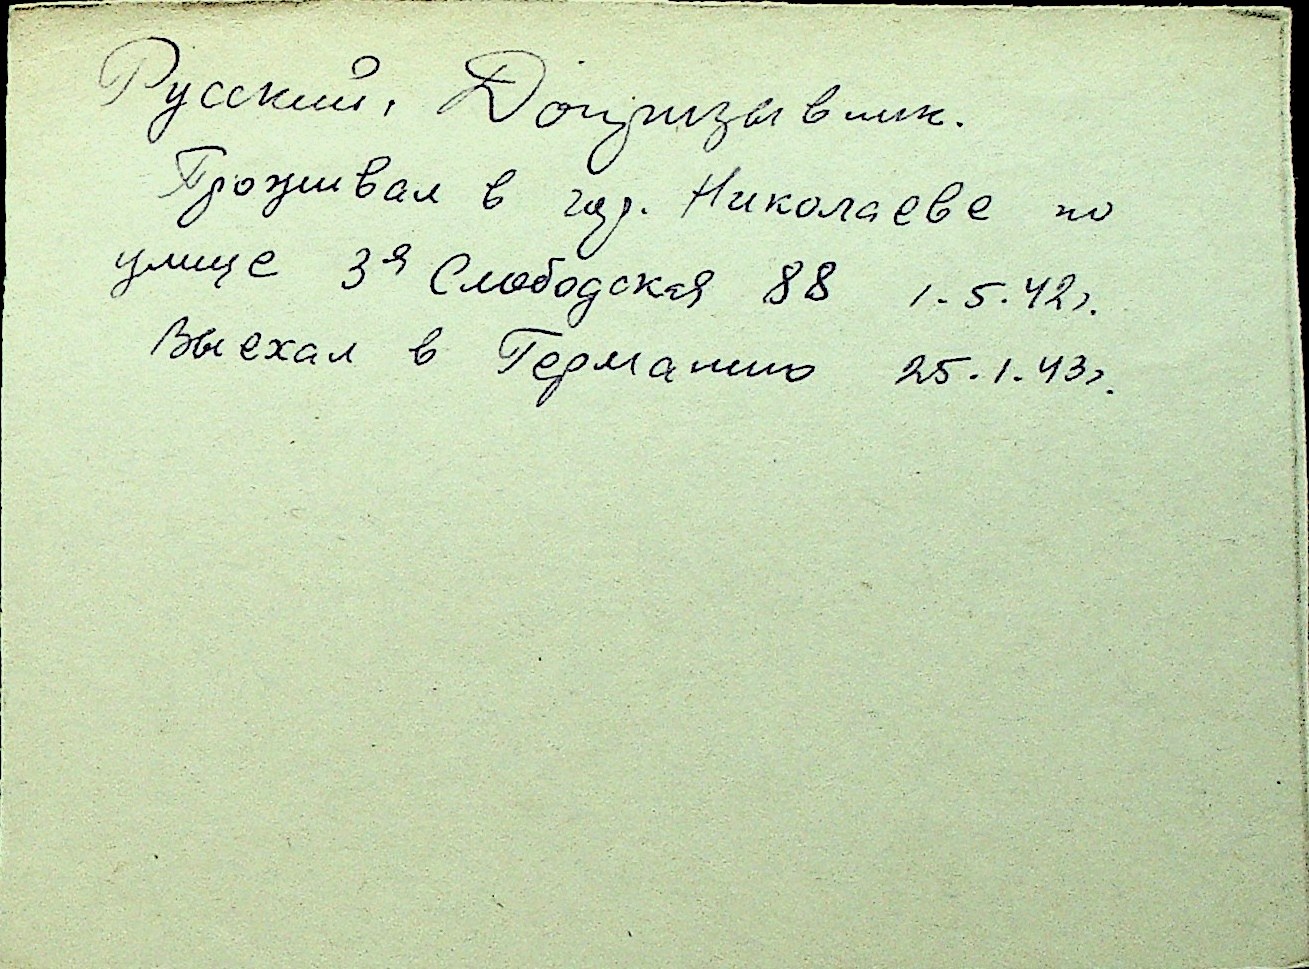 Русский, Допризывник.
Проживал в гор. Николаеве по
улице 3я Слободская 88 1.5.42г.
Выехал в Германию 25.1.43г.